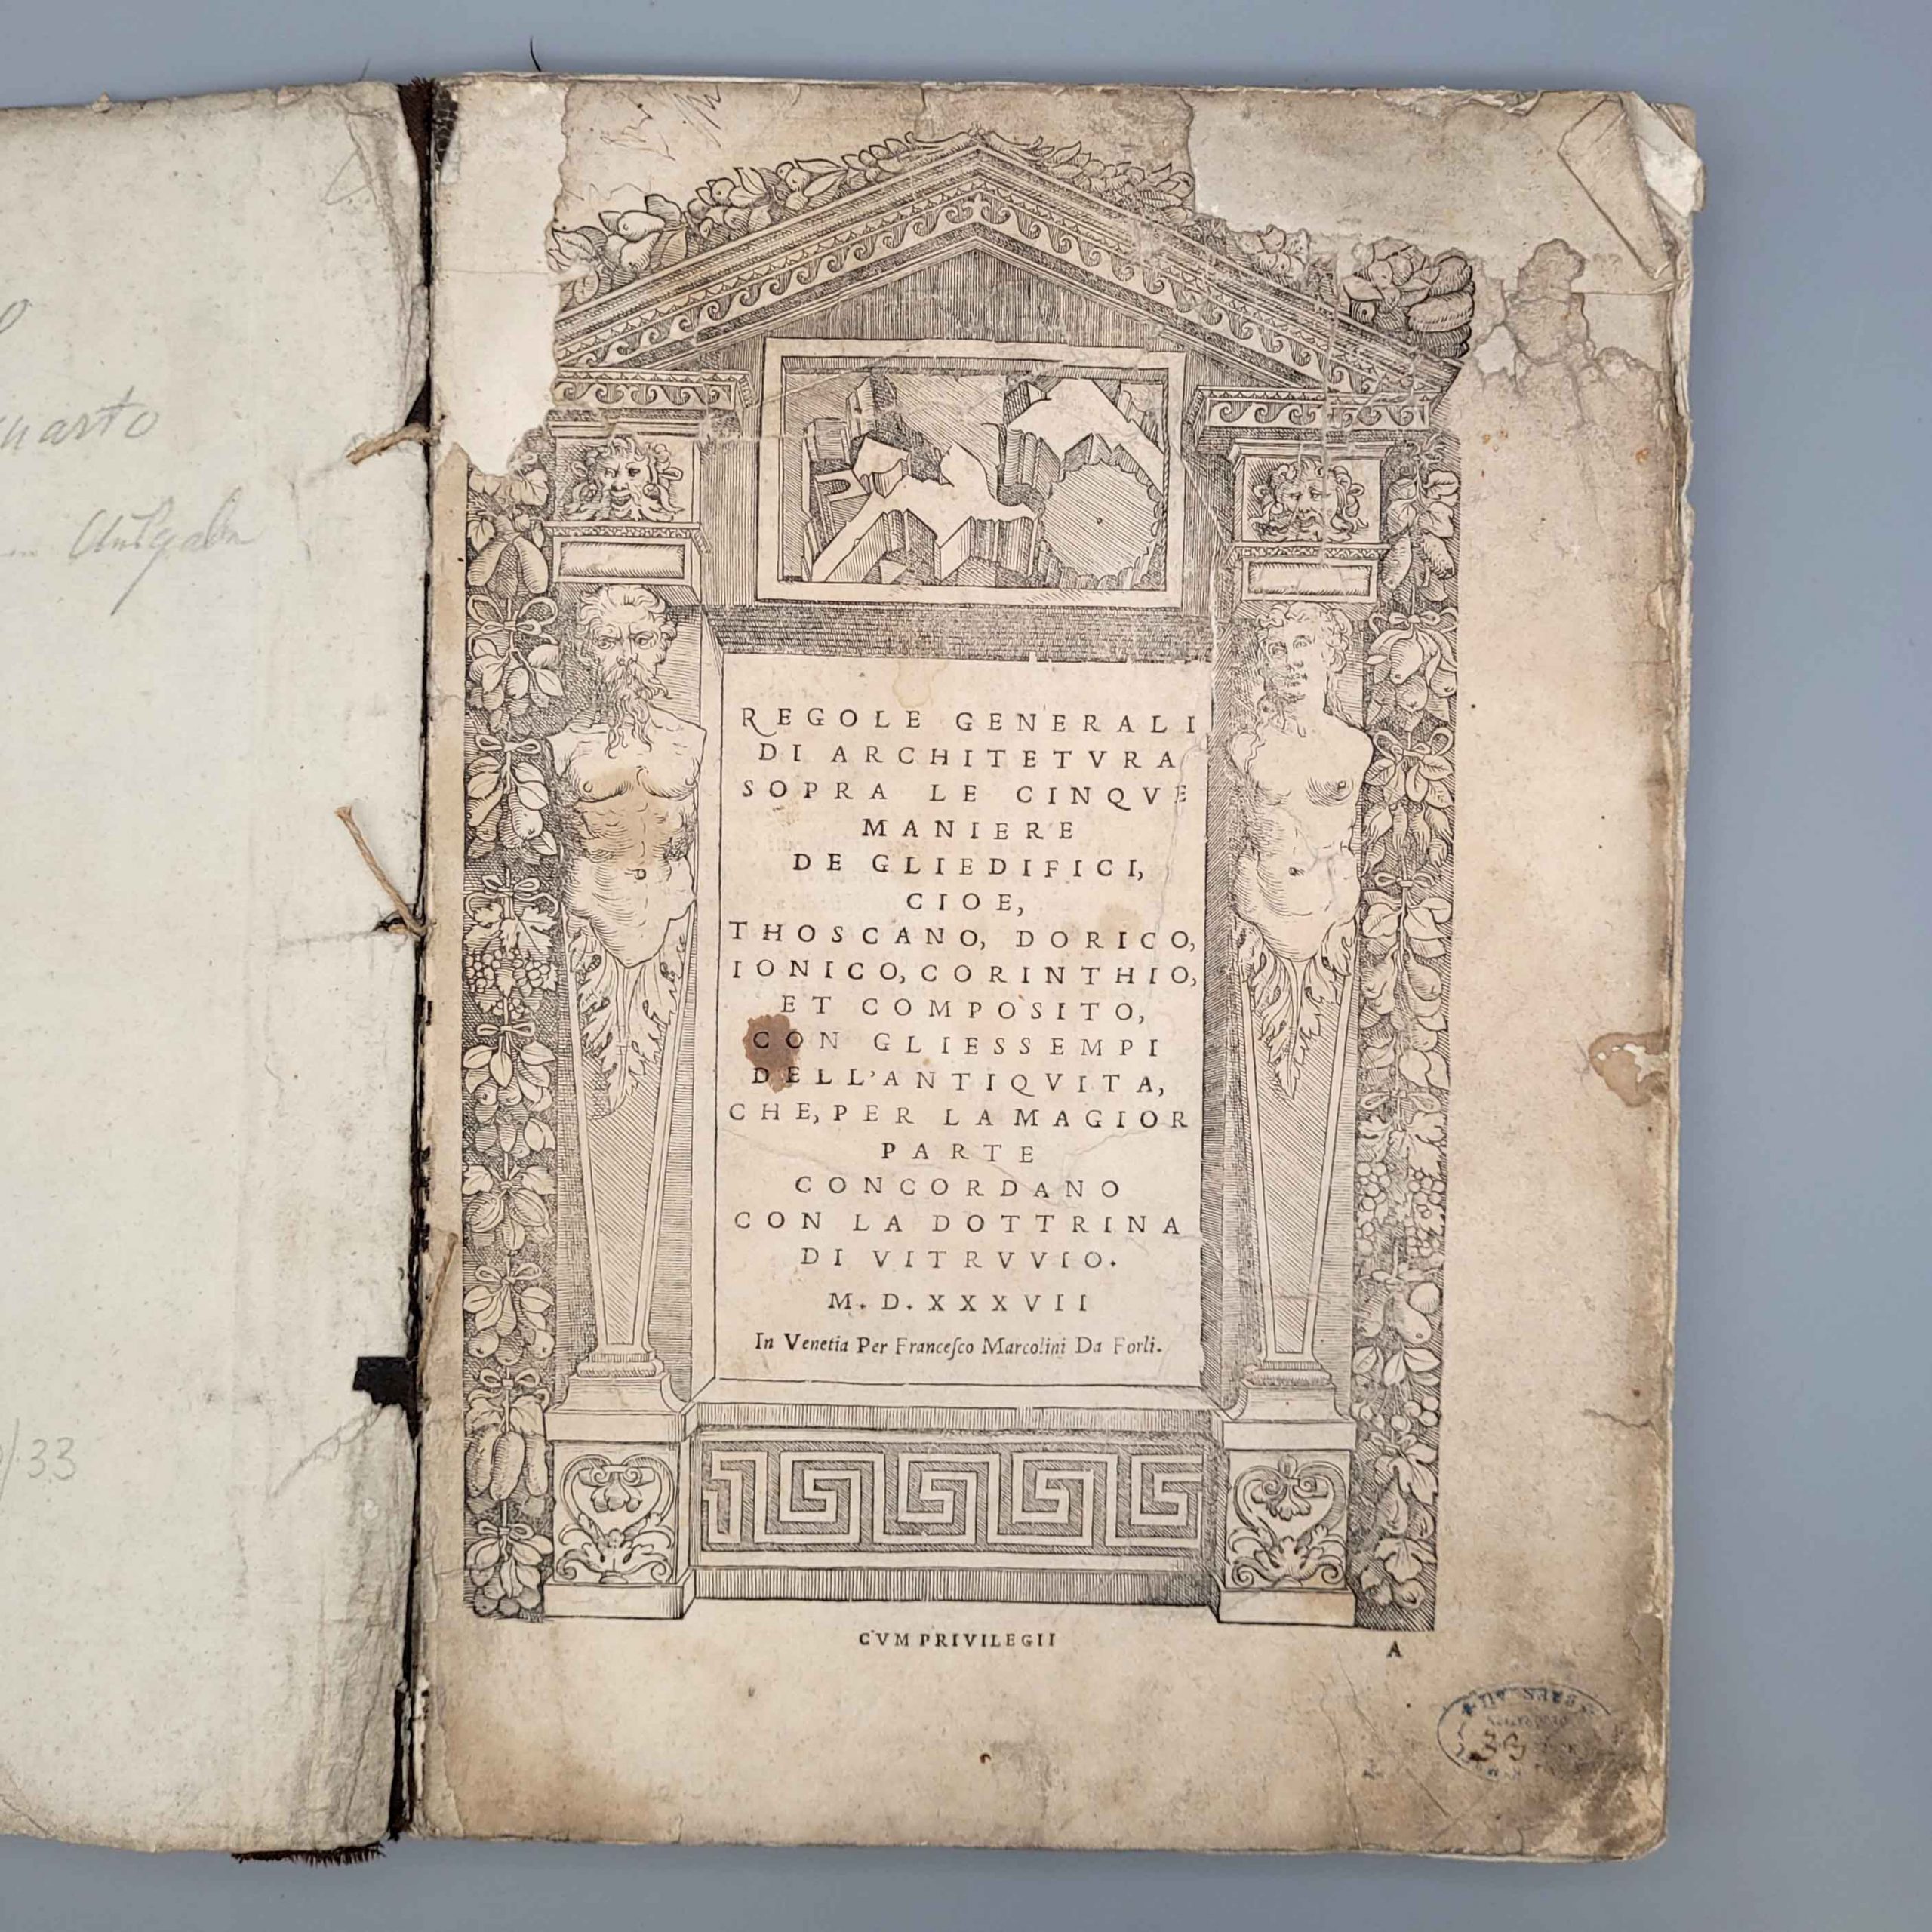 uarto
/33
REGOLE GENERALI
DI ARCHITETVRA
SOPRA LE CINQVE
MANIERE
DE GLIEDIFICI,
CIOE,
THOSCANO, DORICO,
IONICO, CORINTHIO,
ET COMPOSITO,
CON GLIESSEMPI
DELL'ANTIQVITA,
CHE, PER LA MAGIOR
PARTE
CONCORDANO
CON LA DOTTRINA
DI VITRVVIO.
M. D. XXXVII
In Venetia Per Franceſco Marcolini Da Forli.
CVM PRIVILEGII
A